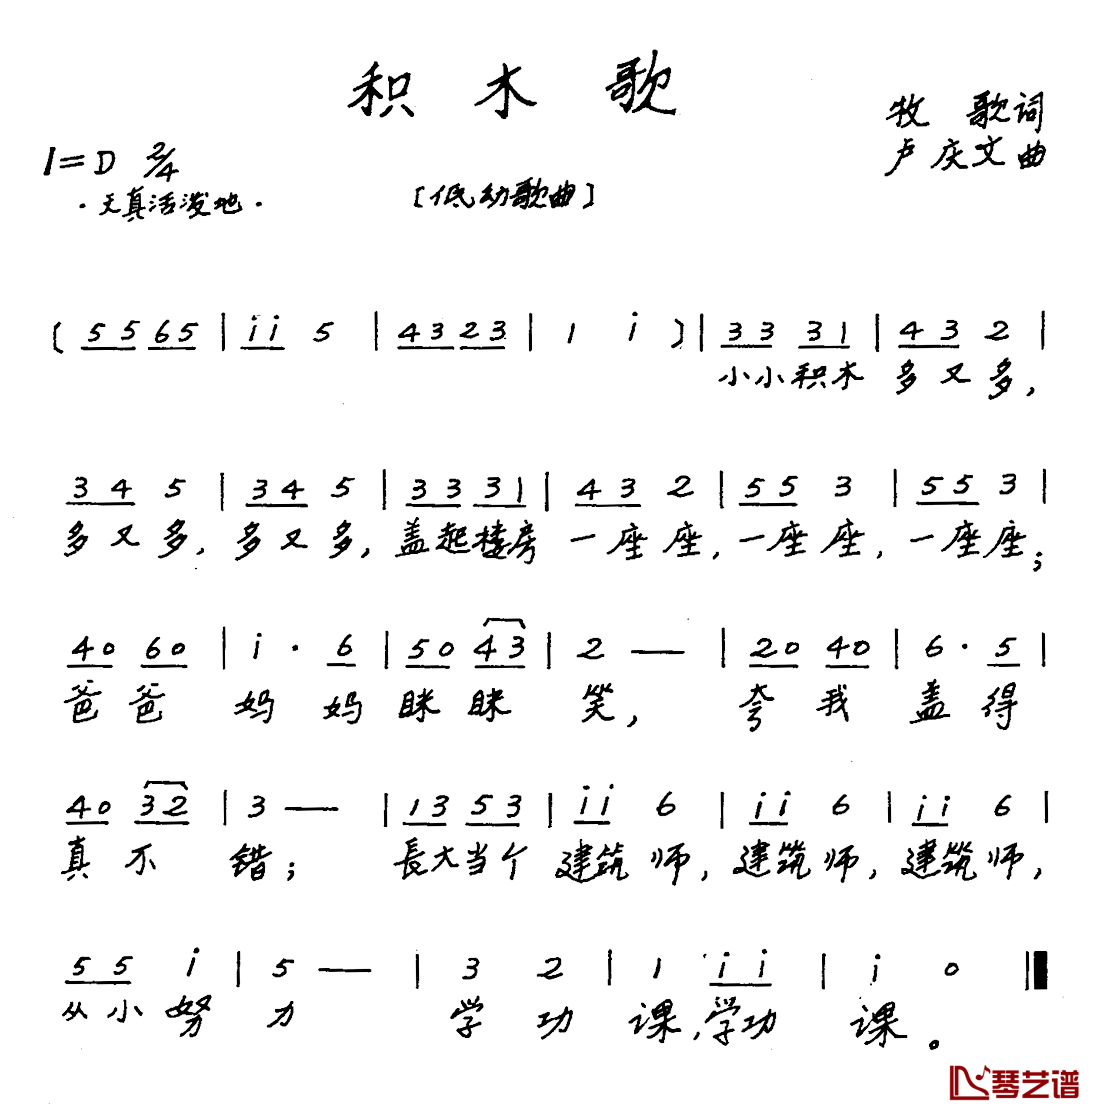 积木歌
牧 歌词
1=D 2/4
卢庆文曲
·天真活泼地·
[低幼歌曲]
( 5 5 6 5 | i i 5 | 4 3 2 3 | 1 i ) | 3 3 3 1 | 4 3 2 |
小小积木 多又多，
3 4 5 | 3 4 5 | 3 3 3 1 | 4 3 2 | 5 5 3 | 5 5 3 |
多又多，多又多，盖起楼房 一座座，一座座，一座座；
4 0 6 0 | i · 6 | 5 0 4 3 | 2 — | 2 0 4 0 | 6 · 5 |
爸 爸 妈 妈 眯 眯 笑， 夸 我 盖 得
4 0 3 2 | 3 — | 1 3 5 3 | i i 6 | i i 6 | i i 6 |
真 不 错； 長大当个 建筑师，建筑师，建筑师，
5 5 i | 5 — | 3 2 | 1 i i | i 0 |
从小努 力 学 功 课，学功 课。
琴艺谱